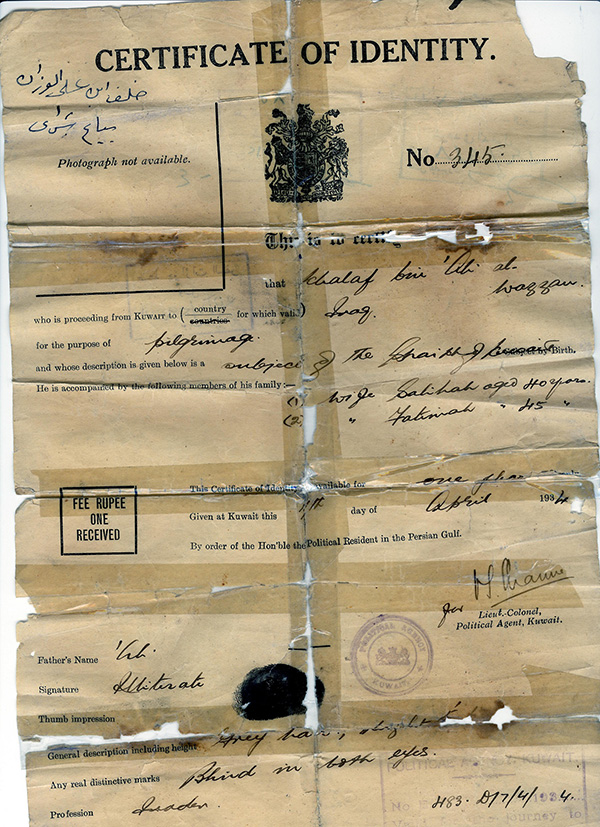 CERTIFICATE OF IDENTITY.
خلف ابن علي الوزان
Photograph not available.
No 345
This is to certify
that Khalaf bin 'Ali al-
Wazzan.
who is proceeding from KUWAIT to ( country countries for which valid ) Iraq.
for the purpose of pilgrimage.
and whose description is given below is a subject of the Shaikh of Kuwait by Birth.
He is accompanied by the following members of his family :—
(1) Wife Salihah aged 40 years.
(2) " Fatimah " 45 "
FEE RUPEE
ONE
RECEIVED
This Certificate of Identity available for one
Given at Kuwait this 7th day of April 1934
By order of the Hon'ble the Political Resident in the Persian Gulf.
for Lieut.-Colonel,
Political Agent, Kuwait.
POLITICAL AGENCY
KUWAIT
Father's Name 'Ali.
Signature Illiterate
Thumb impression
General description including height Grey hair, height 5'
Any real distinctive marks Blind in both eyes.
Profession Trader.
POLITICAL AGENCY, KUWAIT
No 483. D/7/4/ 1934.
journey to